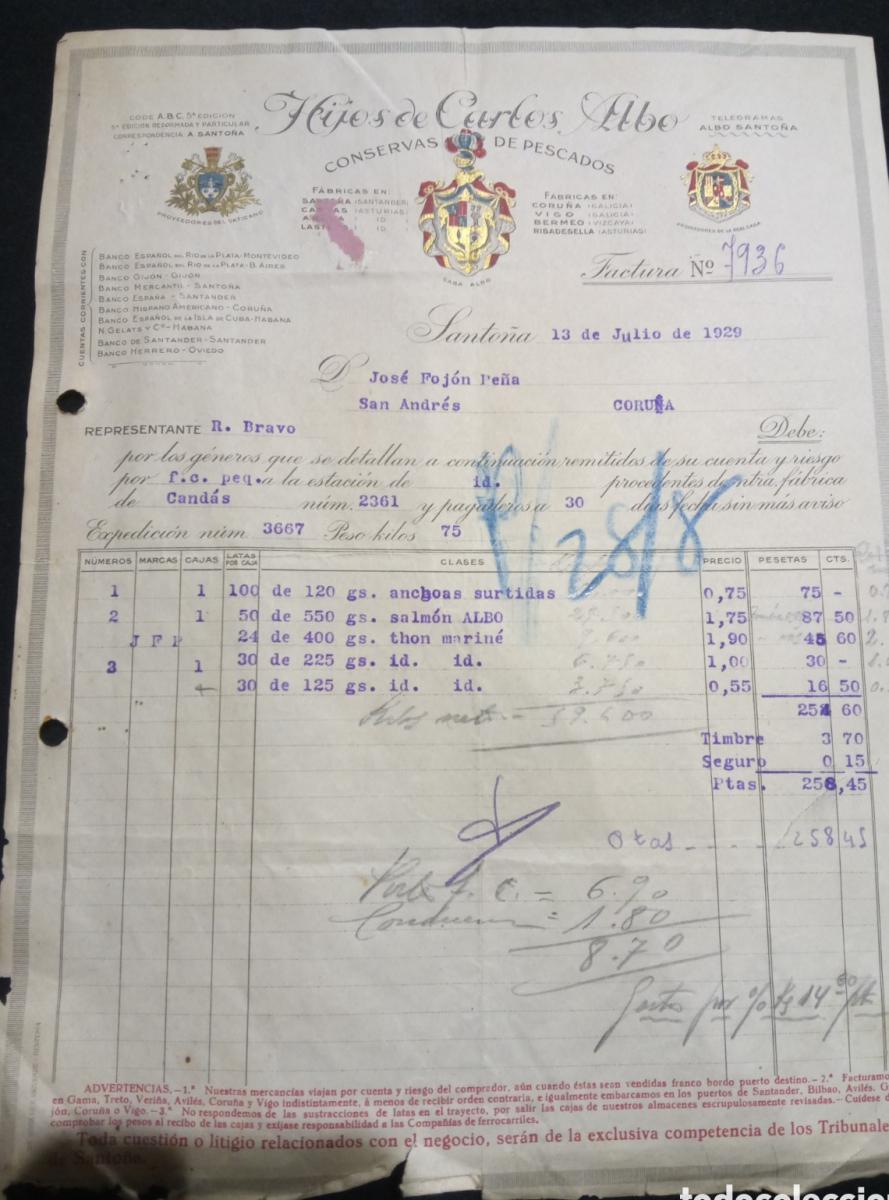 Hijos de Carlos Albo
CONSERVAS DE PESCADOS
CODE A.B.C. 5ª EDICION
5ª EDICION REFORMADA Y PARTICULAR
CORRESPONDENCIA A SANTOÑA
TELEGRAMAS
ALBO SANTOÑA
PROVEEDORES DEL VATICANO
FÁBRICAS EN:
(SANTANDER)
(ASTURIAS)
ID
ID
CASA ALBO
FABRICAS EN:
CORUÑA (GALICIA)
VIGO (GALICIA)
BERMEO (VIZCAYA)
RIBADESELLA (ASTURIAS)
PROVEEDORES DE LA REAL CASA
CUENTAS CORRIENTES CON
BANCO ESPAÑOL DEL RIO DE LA PLATA-MONTEVIDEO
BANCO ESPAÑOL DEL RIO DE LA PLATA-B. AIRES
BANCO GIJON-GIJON
BANCO MERCANTIL-SANTOÑA
BANCO ESPAÑA-SANTANDER
BANCO HISPANO AMERICANO-CORUÑA
BANCO ESPAÑOL DE LA ISLA DE CUBA-HABANA
N. GELATS Y Cª-HABANA
BANCO DE SANTANDER-SANTANDER
BANCO HERRERO-OVIEDO
Factura Nº 7936
Santoña 13 de Julio de 1929
D. José Fojón Peña
San Andrés CORUÑA
REPRESENTANTE R. Bravo Debe:
por los géneros que se detallan a continuación remitidos de su cuenta y riesgo
por f.c. peq. a la estación de id. procedentes de ntra. fábrica
de Candás núm. 2361 y pagaderos a 30 días fecha sin más aviso
Expedición núm. 3667 Peso kilos 75
P/ 28/8
NÚMEROS MARCAS CAJAS LATAS POR CAJA CLASES PRECIO PESETAS CTS.
1 1 100 de 120 gs. anchoas surtidas 0,75 75 -
2 1 50 de 550 gs. salmón ALBO 1,75 87 50
J F P 24 de 400 gs. thon mariné 1,90 45 60
3 1 30 de 225 gs. id. id. 1,00 30 - 6.750
30 de 125 gs. id. id. 0,55 16 50 3.750
254 60
Kilos net - 59.600
Timbre 3 70
Seguro 0 15
Ptas. 258,45
Ptas - - - - 258 45
Porte f. C. = 6.90
= 1.80
8.70
Gastos por % Kg 14
ADVERTENCIAS.-1.ª Nuestras mercancías viajan por cuenta y riesgo del comprador, aún cuando éstas sean vendidas franco bordo puerto destino.-2.ª Facturamo
en Gama, Treto, Veriña, Avilés, Coruña y Vigo indistintamente, á menos de recibir orden contraria, e igualmente embarcamos en los puertos de Santander, Bilbao, Avilés, G
jón, Coruña o Vigo.-3.ª No respondemos de las sustracciones de latas en el trayecto, por salir las cajas de nuestros almacenes escrupulosamente revisadas.-Cuídese d
comprobar los pesos al recibo de las cajas y exíjase responsabilidad a las Compañías de ferrocarriles.
Toda cuestión o litigio relacionados con el negocio, serán de la exclusiva competencia de los Tribunale
de Santoña.
todocoleccio